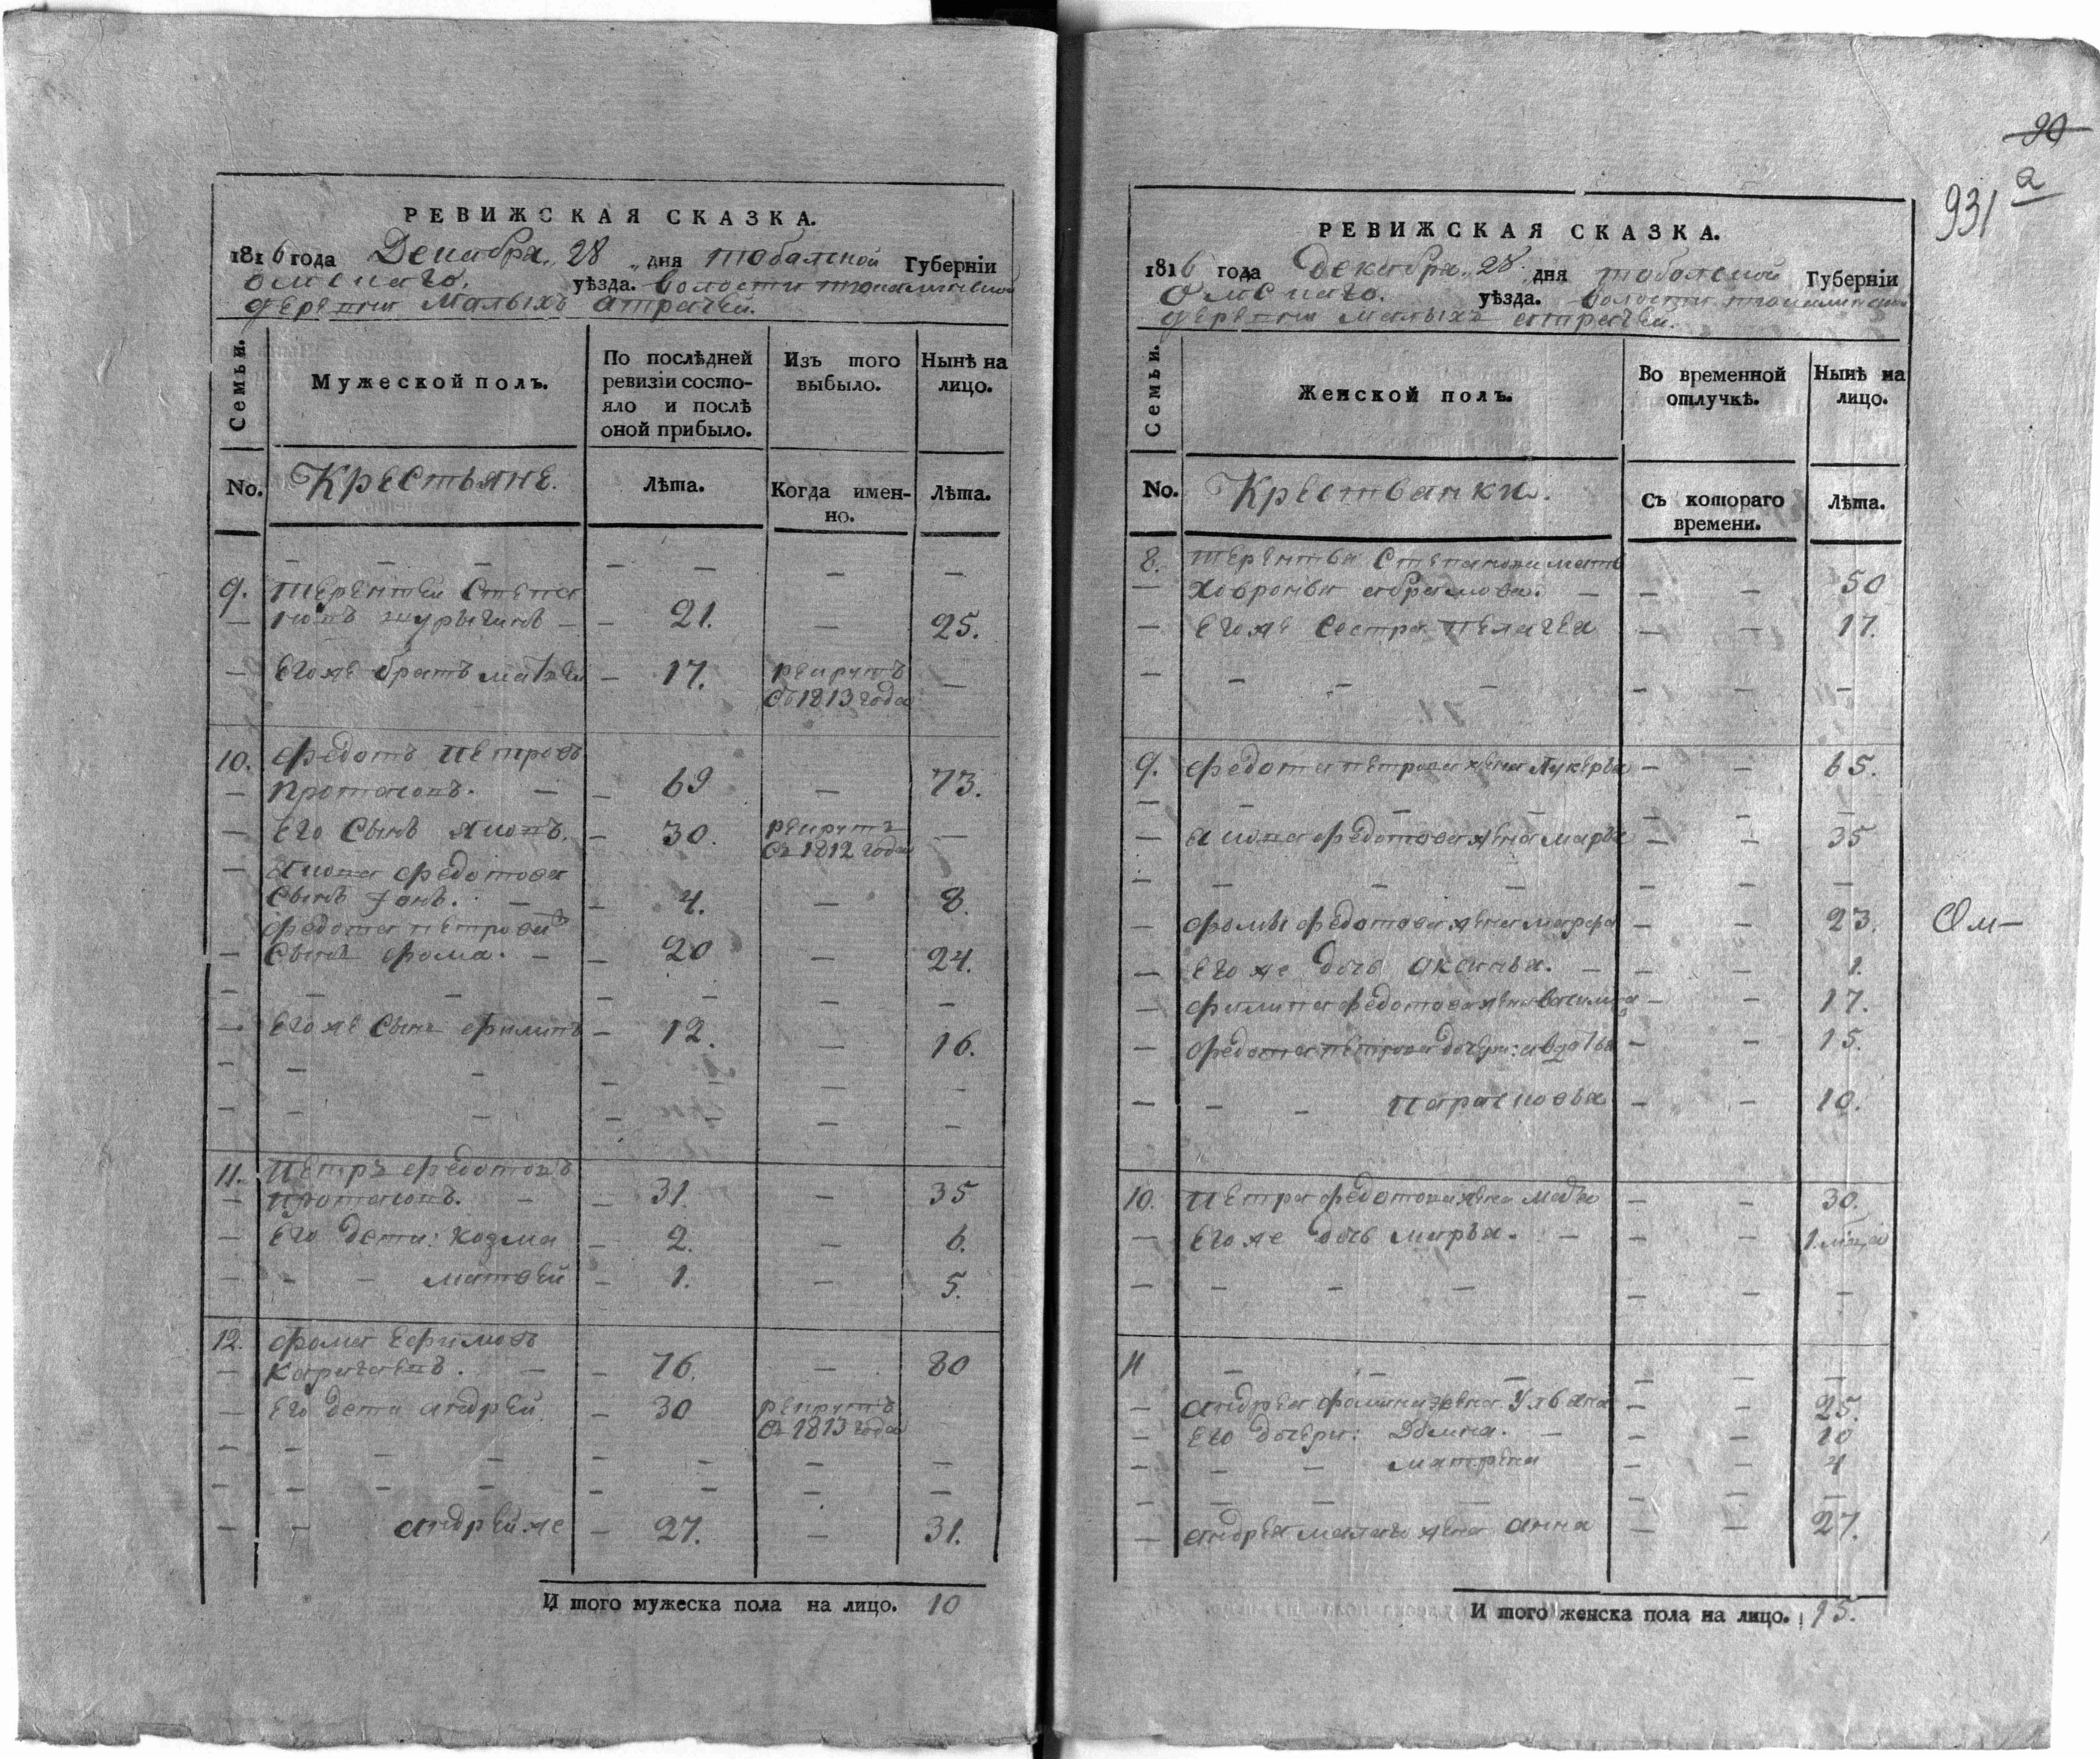 РЕВИЖСКАЯ СКАЗКА.
1816 года Декабря 28 дня тобалской Губерніи
омскаго. уѣзда. волости
деревни Малыхъ атрачей.
Семьи.
Мужеской полъ.
По послѣдней ревизіи состо-
яло и послѣ
оной прибыло.
Изъ того
выбыло.
Нынѣ на
лицо.
No.
Крестьяне.
Лѣта.
Когда имен-
но.
Лѣта.
9. терентей Степа
новъ 21. 25.
Его же братъ матвей 17. рекрутъ
съ 1813 года
10. Федотъ петровъ
протасовъ. 69 73.
Его Сынъ 30. рекрутъ
съ 1812 года
федотова
Сынъ 4. 8.
Федота петрова
Сынъ фома. 20 24.
Его же Сынъ филипъ 12. 16.
11. петръ федотовъ
протасовъ. 31. 35
Его дети: козма 2. 6.
матвей 1. 5.
12. фома Ефимовъ
76. 80
Его дети андрей 30 рекрутъ
съ 1813 года
андрей же 27. 31.
И того мужеска пола на лицо. 10
90
931 а
РЕВИЖСКАЯ СКАЗКА.
1816 года Декабря 28 дня тобалской Губерніи
Омскаго. уѣзда. волости
деревни малыхъ атрачей.
Семьи.
Женской полъ.
Во временной
отлучкѣ.
Нынѣ на
лицо.
No.
Крестьанки.
Съ котораго
времени.
Лѣта.
8. терентья Степанова мать
Ховронья абрамова. 50
Его же Сестра пелагея 17.
9. федота петрова жена лукерья 65.
федотова жена марья 35
фомы федотова жена марфа 23.
Его же дочь аксинья. 1.
филипа федотова жена василиса 17.
федота петрова дочери: авдотья 15.
парасковья 10.
10. петра федотова жена 30.
Его же дочь марья. 1.
11
андрея фомина жена Ульана 25.
Его дочери: 10
матрена 4
андрея малаго жена анна 27.
Ом
И того женска пола на лицо. 15.